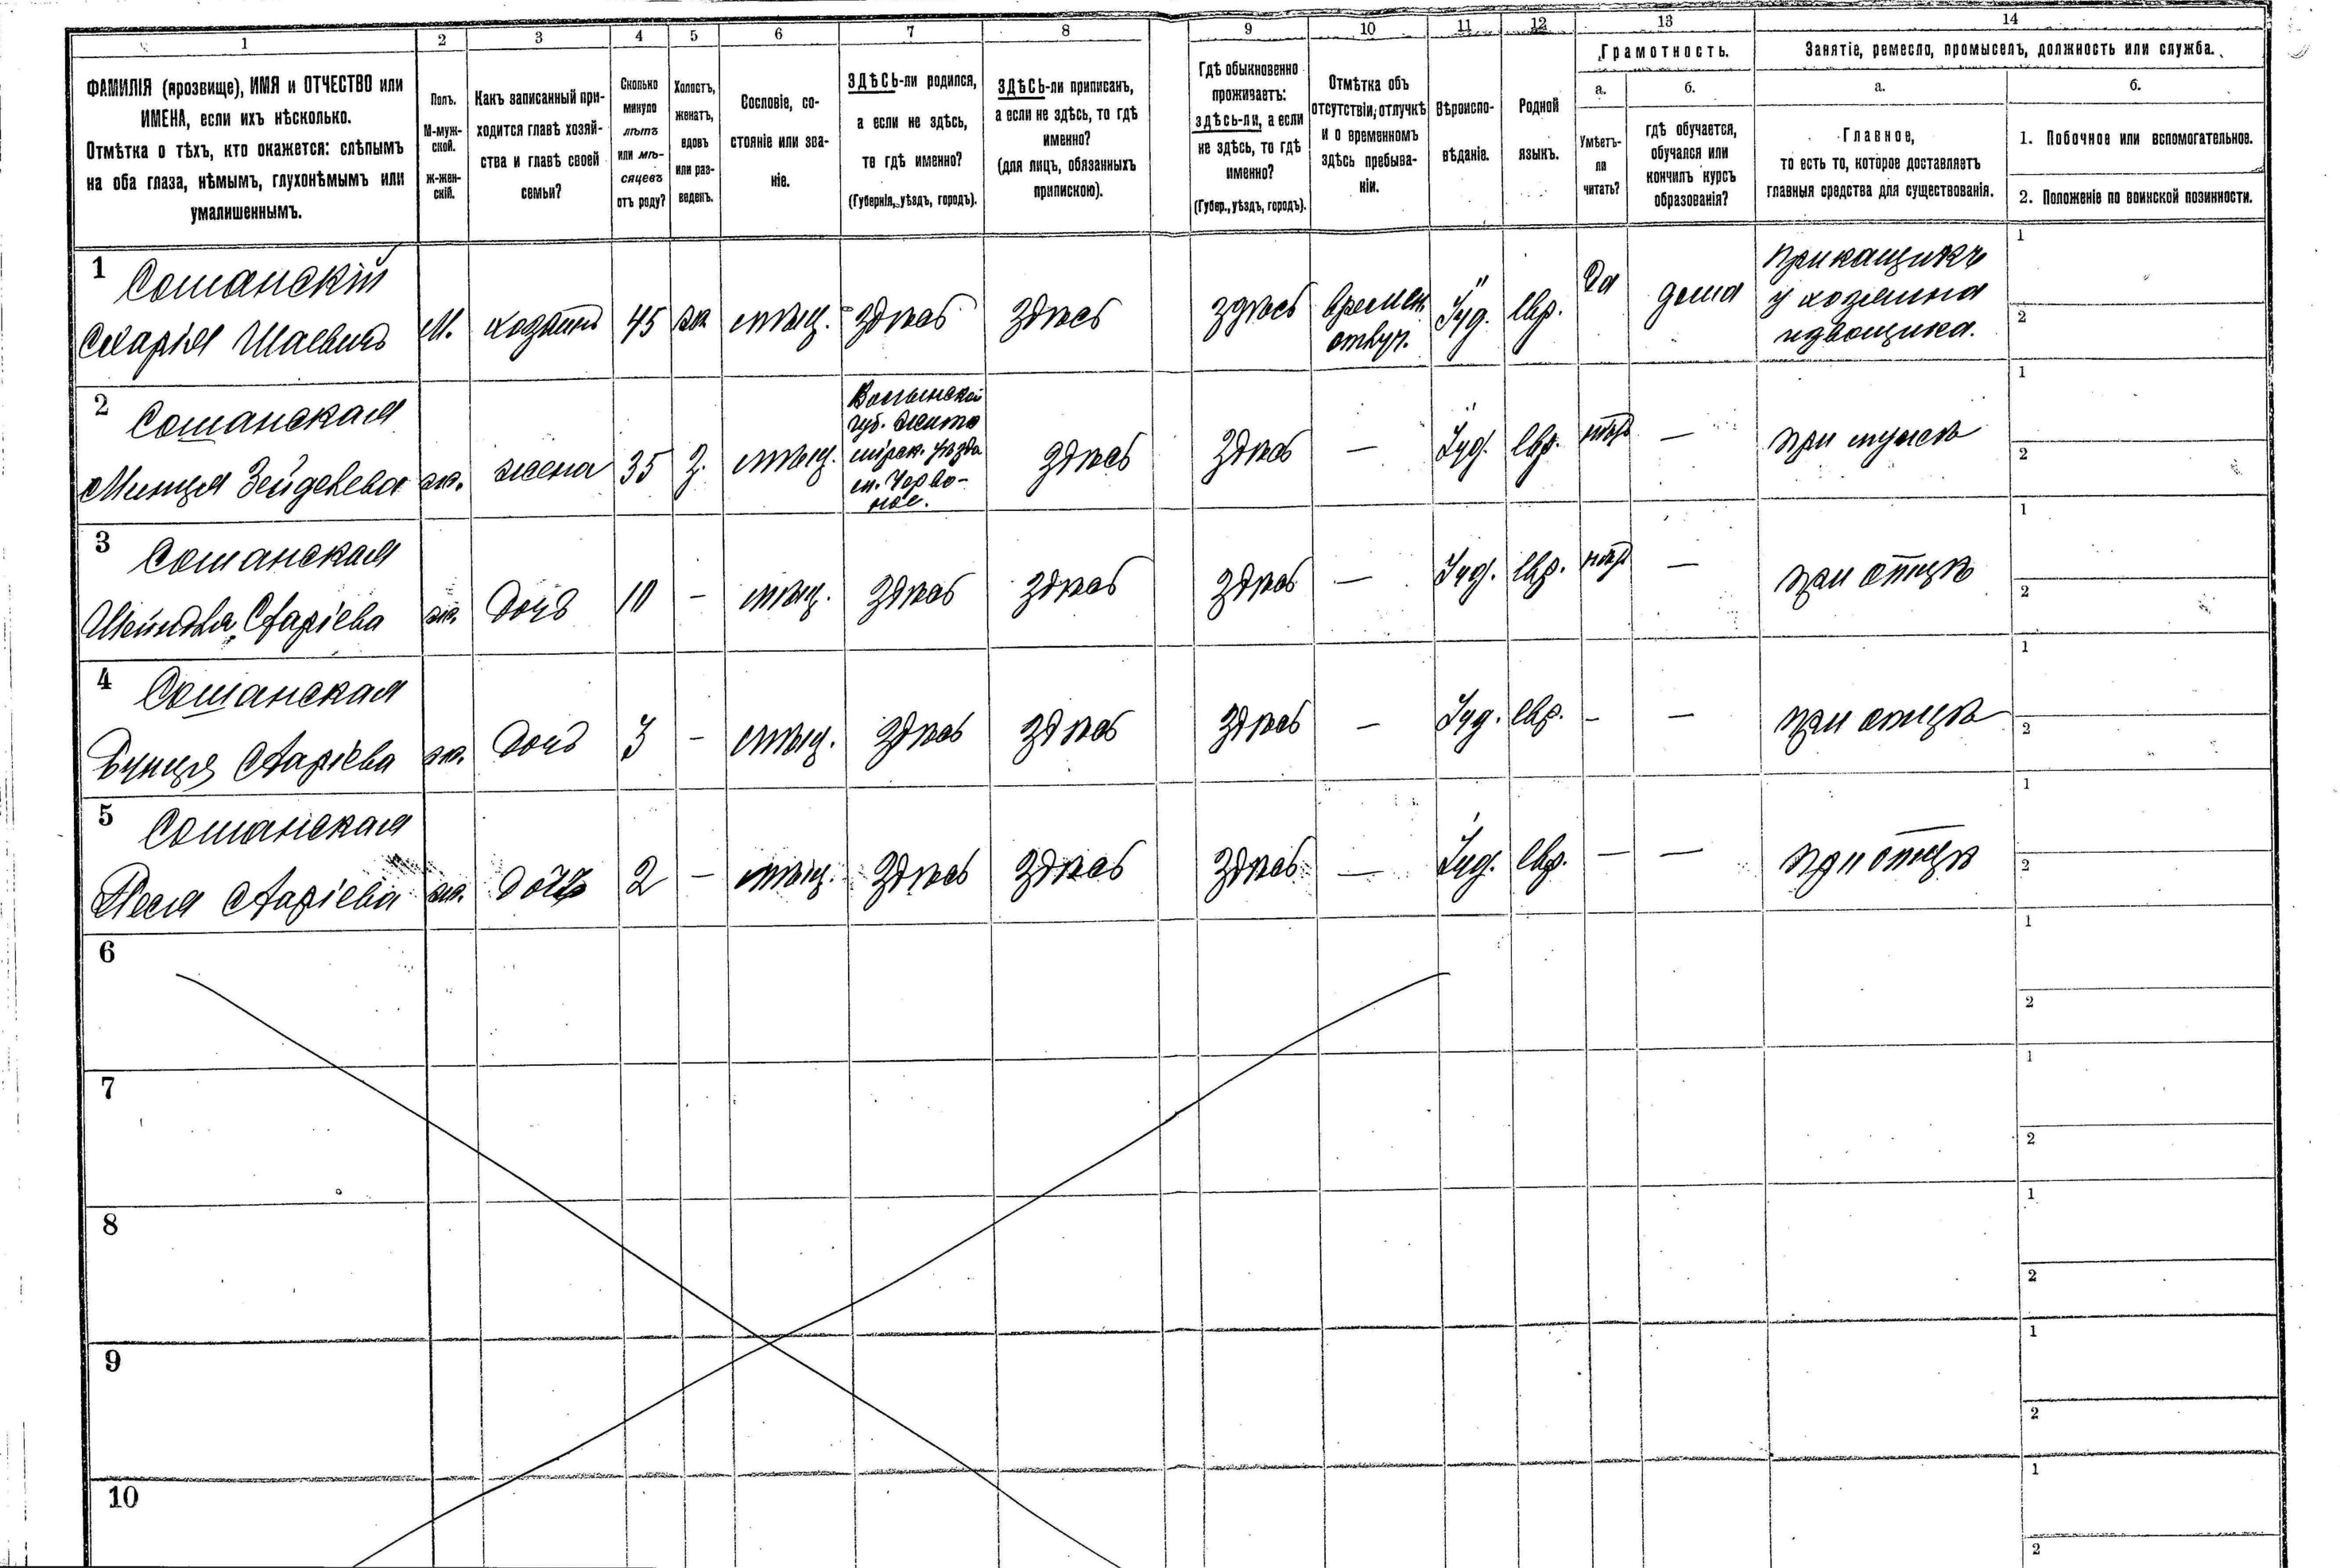 1 2 3 4 5 6 7 8 9 10 11 12 13 14
ФАМИЛІЯ (прозвище), ИМЯ и ОТЧЕСТВО или
ИМЕНА, если ихъ нѣсколько.
Отмѣтка о тѣхъ, кто окажется: слѣпымъ
на оба глаза, нѣмымъ, глухонѣмымъ или
умалишеннымъ.
Полъ.
М-муж-
ской.
ж-жен-
скій.
Какъ записанный при-
ходится главѣ хозяй-
ства и главѣ своей
семьи?
Сколько
минуло
лѣтъ
или мѣ-
сяцевъ
отъ роду?
Холостъ,
женатъ,
вдовъ
или раз-
веденъ.
Сословіе, со-
стояніе или зва-
ніе.
ЗДѢСЬ-ли родился,
а если не здѣсь,
то гдѣ именно?
(Губернія, уѣздъ, городъ).
ЗДѢСЬ-ли приписанъ,
а если не здѣсь, то гдѣ
именно?
(для лицъ, обязанныхъ
припискою).
Гдѣ обыкновенно
проживаетъ:
здѣсь-ли, а если
не здѣсь, то гдѣ
именно?
(Губер., уѣздъ, городъ).
Отмѣтка объ
отсутствіи, отлучкѣ
и о временномъ
здѣсь пребыва-
ніи.
Вѣроиспо-
вѣданіе.
Родной
языкъ.
Грамотность.
а.
Умѣетъ-
ли
читать?
б.
гдѣ обучается,
обучался или
кончилъ курсъ
образованія?
Занятіе, ремесло, промыселъ, должность или служба.
а.
Главное,
то есть то, которое доставляетъ
главныя средства для существованія.
б.
1. Побочное или вспомогательное.
2. Положеніе по воинской повинности.
1
Сошанскій
Схарія Шаевичъ
М.
хозяинъ
45
ж
мѣщ.
здѣсь
здѣсь
здѣсь
времен.
отлуч.
Іуд.
евр.
да
дома
прикащикъ
у хозяина
извощика.
1
2
2
Сошанская
Минця Зейделева
ж.
жена
35
З.
мѣщ.
Волынской
губ. Жито
мірск. уѣзда
м. Черво-
ное.
здѣсь
здѣсь
—
Іуд.
евр.
нѣтъ
—
при мужѣ
1
2
3
Сошанская
Шейндля Схаріева
ж.
дочь
10
-
мѣщ.
здѣсь
здѣсь
здѣсь
—
Іуд.
евр.
нѣтъ
—
при отцѣ
1
2
4
Сошанская
Бунця Схаріева
ж.
дочь
3
-
мѣщ.
здѣсь
здѣсь
здѣсь
—
Іуд.
евр.
-
—
при отцѣ
1
2
5
Сошанская
Песя Схаріева
ж.
дочь
2
-
мѣщ.
здѣсь
здѣсь
здѣсь
—
Іуд.
евр.
—
—
при отцѣ
1
2
6
1
2
7
1
2
8
1
2
9
1
2
10
1
2